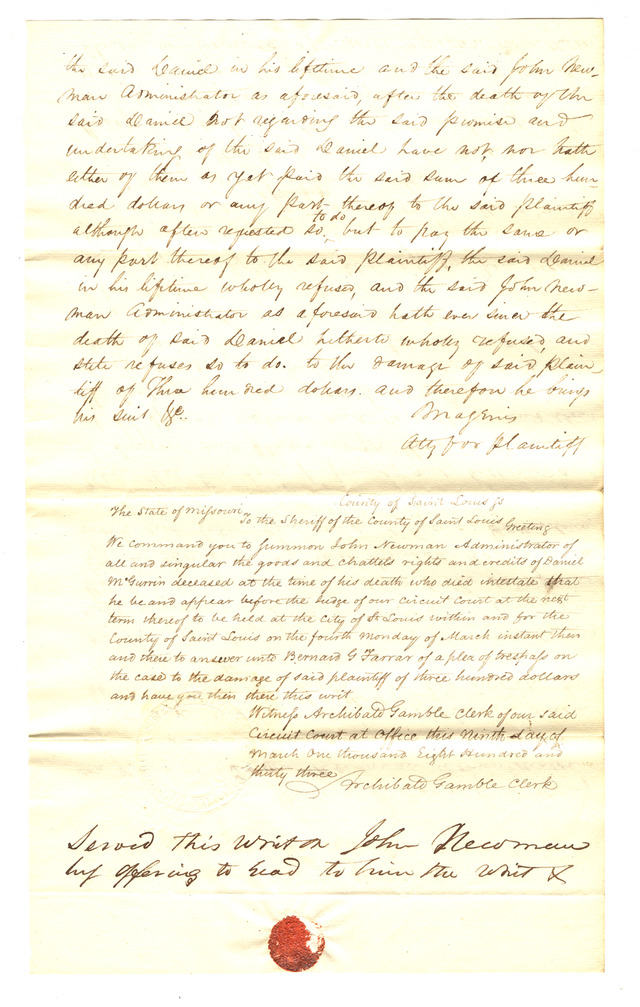 the said Daniel in his lifetime and the said John New-
man Administrator as aforesaid, after the death of the
said Daniel not regarding the said promise and
undertaking of the said Daniel have not, nor hath
either of them as yet paid the said sum of three hun-
dred dollars or any part thereof to the said plaintiff
although often requested so to do, but to pay the same or
any part thereof to the said plaintiff, the said Daniel
in his lifetime wholly refused, and the said John New-
man Administrator as aforesaid hath ever since the
death of said Daniel hitherto wholly refused, and
still refuses so to do. to the damage of said plain
tiff of Three hundred dollars. and therefore he brings
his suit &c.
Magenis
Atty for Plaintiff
County of Saint Louis ss
The State of Missouri To the Sheriff of the County of Saint Louis Greeting
We command you to Summon John Newman Administrator of
all and singular the goods and chattels rights and credits of Daniel
McGurrin deceased at the time of his death who died intestate that
he be and appear before the Judge of our Circuit Court at the next
term thereof to be held at the City of St Louis within and for the
County of Saint Louis on the fourth Monday of March instant then
and there to answer unto Bernard G Farrar of a plea of trespass on
the case to the damage of said plaintiff of three hundred dollars
and have you then there this writ
Witness Archibald Gamble Clerk of our said
Circuit Court at Office this Ninth day of
March One thousand Eight Hundred and
thirty three
Archibald Gamble Clerk
Served this writ on John Newman
by offering to read to him the writ &